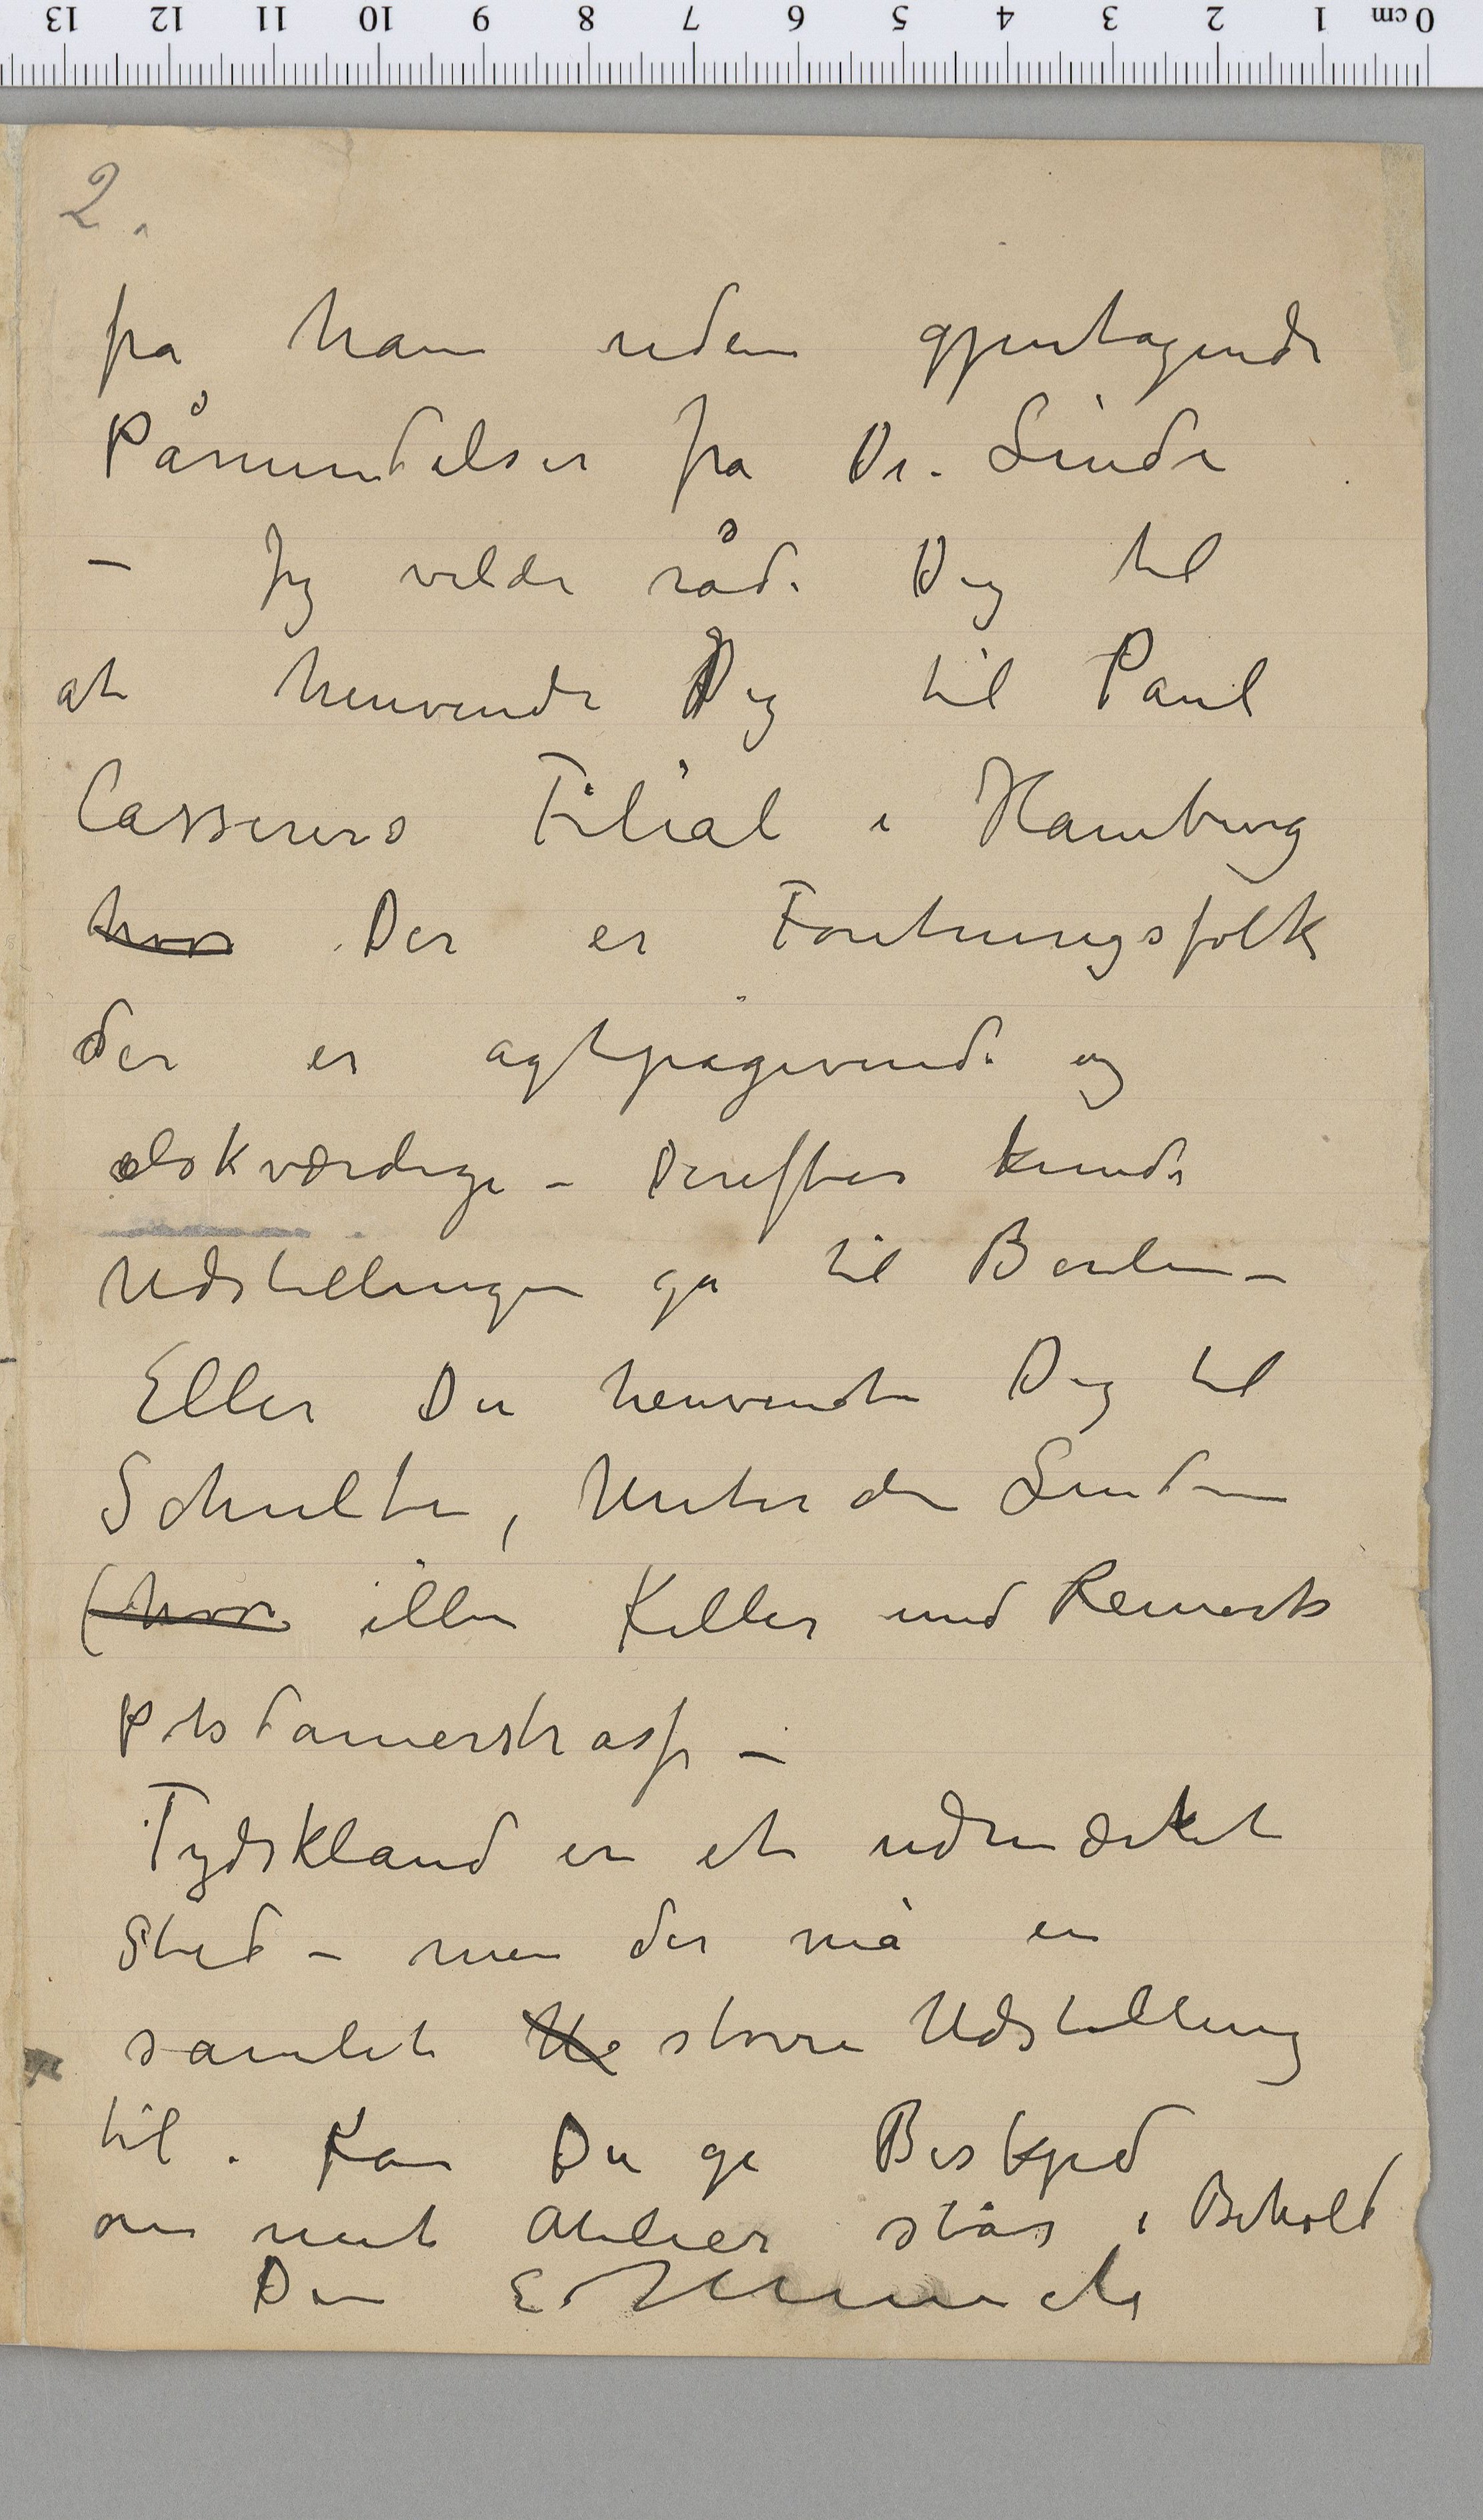 13 12 11 10 9 8 7 6 5 4 3 2 1 0 cm
2.
fra ham uden gjentagende
Påmindelser fra Dr. Linde
– Jeg vilde råde Dig til
at henvende Dig til Paul
Cassirers Filial i Hamburg
hvor Der er Foretningsfolk
der er agtpågivende og
elskværdige – Derefter kunde
Udstillingen gå til Berlin –
Eller Du henvendte Dig til
Schulte, Unter den Linden
(hvor eller Keller und
Potsdamerstrasse –
Tydskland er et udmærket
Sted – men der må en
samlet større Udstilling
til. Kan Du gi Beskjed
om mit Atelier står i Behold
Din E. Munch